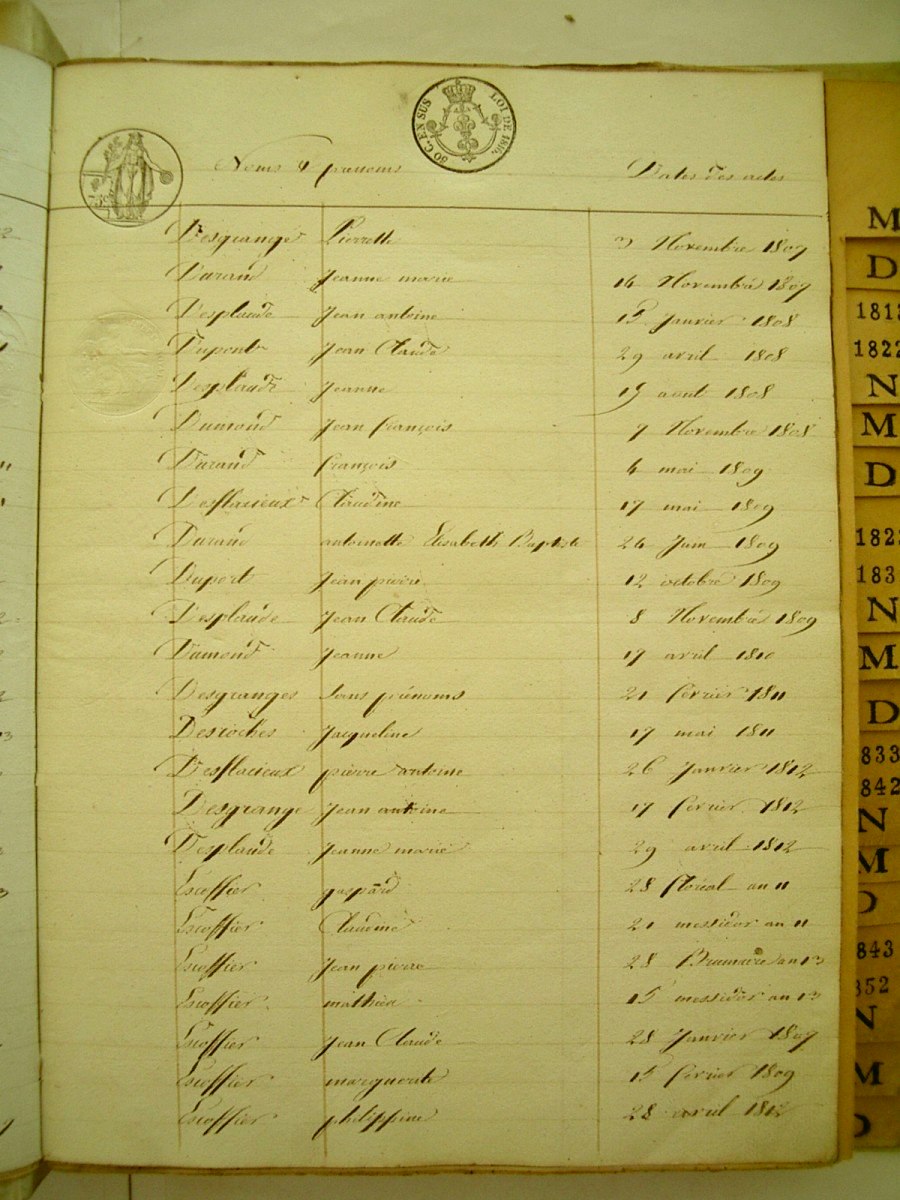 50 C. EN SUS LOI DE 1816.
Noms & prenoms Dates des actes
Desgrange Pierrette 3 Novembre 1807
Durand Jeanne marie 14 Novembre 1807
Desplaude Jean antoine 15 Janvier 1808
Dupont Jean Claude 29 avril 1808
Desplaude Jeanne 19 aout 1808
Dumond Jean françois 9 Novembre 1808
Durand françois 4 mai 1809
Desflacieux Claudine 17 mai 1809
Durand antoinette Elisabeth Baptiste 24 Juin 1809
Duport Jean pierre 12 octobre 1809
Desplaude Jean Claude 8 Novembre 1809
Dumond Jeanne 17 avril 1810
Desgranges sans prénoms 21 fevrier 1811
Desroches Jacqueline 17 mai 1811
Desflacieux pierre antoine 26 Janvier 1812
Desgrange Jean antoine 17 fevrier 1812
Desplaude Jeanne marie 29 avril 1812
Escoffier gaspard 28 floréal an 11
Escoffier Claudine 21 messidor an 11
Escoffier Jean pierre 28 Brumaire an 13
Escoffier mathieu 15 messidor an 13
Escoffier Jean Claude 28 Janvier 1807
Escoffier marguerite 15 fevrier 1809
Escoffier philippine 28 avril 1812
M
D
1813
1822
N
M
D
N
M
D
833
842
N
M
D
843
852
N
M
D